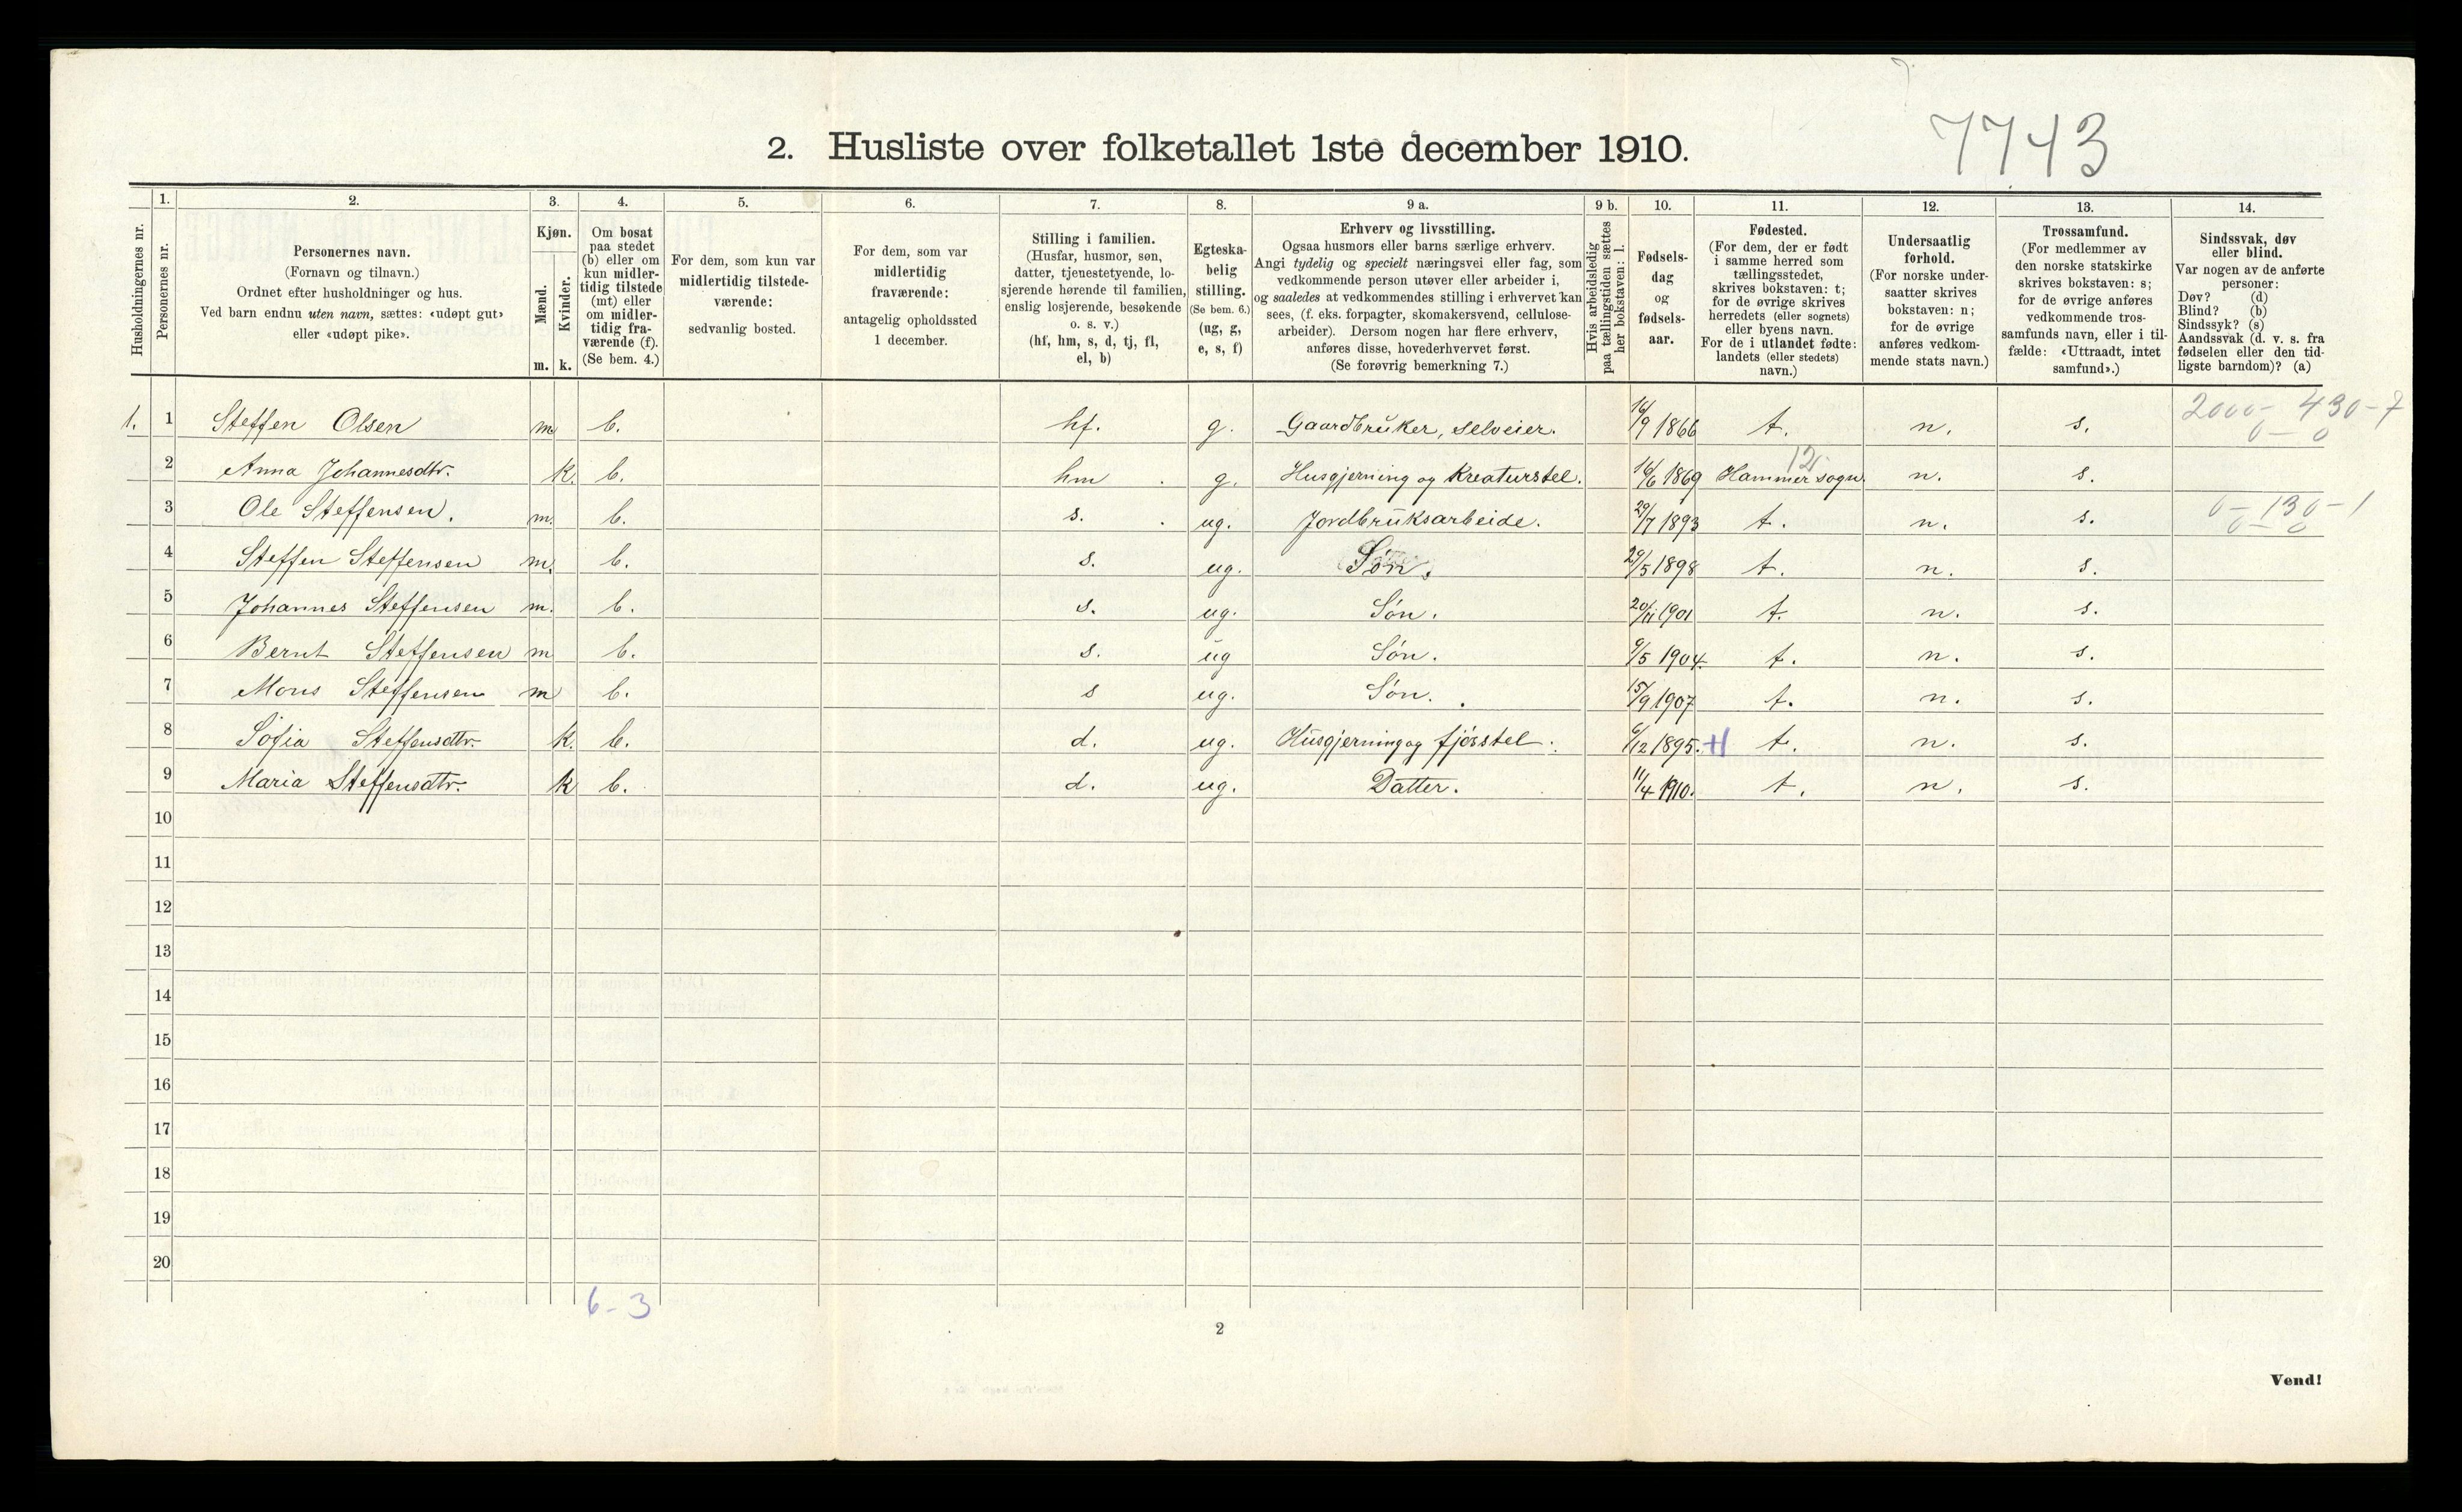 7743
2. Husliste over folketallet 1ste december 1910.
Husholdningernes nr.
1. Personernes nr.
2. Personernes navn.
(Fornavn og tilnavn.)
Ordnet efter husholdninger og hus.
Ved barn endnu uten navn, sættes: «udøpt gut»
eller «udøpt pike».
3. Kjøn.
Mænd. Kvinder.
m. k.
4. Om bosat
paa stedet
(b) eller om
kun midler-
tidig tilstede
(mt) eller
om midler-
tidig fra-
værende (f).
(Se bem. 4.)
5. For dem, som kun var
midlertidig tilstede-
værende:
sedvanlig bosted.
6. For dem, som var
midlertidig
fraværende:
antagelig opholdssted
1 december.
7. Stilling i familien.
(Husfar, husmor, søn,
datter, tjenestetyende, lo-
sjerende hørende til familien,
enslig losjerende, besøkende
o. s. v.)
(hf, hm, s, d, tj, fl,
el, b)
8. Egteska-
belig
stilling.
(Se bem. 6.)
(ug, g,
e, s, f)
9 a. Erhverv og livsstilling.
Ogsaa husmors eller barns særlige erhverv.
Angi tydelig og specielt næringsvei eller fag, som
vedkommende person utøver eller arbeider i,
og saaledes at vedkommendes stilling i erhvervet kan
sees, (f. eks. forpagter, skomakersvend, cellulose-
arbeider). Dersom nogen har flere erhverv,
anføres disse, hovederhvervet først.
(Se forøvrig bemerkning 7.)
9 b. Hvis arbeidsledig
paa tællingstiden sættes
her bokstaven: l.
10. Fødsels-
dag
og
fødsels-
aar.
11. Fødested.
(For dem, der er født
i samme herred som
tællingsstedet,
skrives bokstaven: t;
for de øvrige skrives
herredets (eller sognets)
eller byens navn.
For de i utlandet fødte:
landets (eller stedets)
navn.)
12. Undersaatlig
forhold.
(For norske under-
saatter skrives
bokstaven: n;
for de øvrige
anføres vedkom-
mende stats navn.)
13. Trossamfund.
(For medlemmer av
den norske statskirke
skrives bokstaven: s;
for de øvrige anføres
vedkommende tros-
samfunds navn, eller i til-
fælde: «Uttraadt, intet
samfund».)
14. Sindssvak, døv
eller blind.
Var nogen av de anførte
personer:
Døv? (d)
Blind? (b)
Sindssyk? (s)
Aandssvak (d. v. s. fra
fødselen eller den tid-
ligste barndom)? (a)
1. 1 Steffen Olsen m b. hf. g. Gaardbruker, selveier. 16/9 1866 t. n. s. 2000- 430-7
0-0
2 Anna Johannesdtr. k. b. hm g. Husgjerning og Kreaturstel. 16/6 1869 Hammer sogn 12 n. s.
3 Ole Steffensen. m. b. s. ug. Jordbruksarbeide. 29/7 1893 t. n. s. 0-130-1
0-0
4 Steffen Steffensen m. b. s. ug. Søn. 29/5 1898 t. n. s.
5 Johannes Steffensen m. b. s. ug. Søn. 20/11 1901 t. n. s.
6 Bernt Steffensen m b. s. ug Søn. 9/5 1904. t. n. s.
7 Mons Steffensen m b. s ug. Søn. 15/9 1907 t. n. s.
8 Sofia Steffensdtr. k. b. d. ug. Husgjerning og fjøsstel. 6/12 1895. t. n. s.
9 Maria Steffensdtr. k b. d. ug. Datter. 11/4 1910. t. n. s.
10
11
12
13
14
15
16
17
18
19
20
6-3
2
Vend!